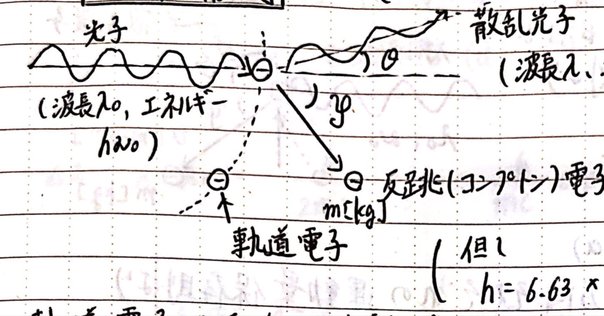 光子
散乱光子
θ
(波長λ、
(波長λ₀, エネルギー
hν₀)
φ
反跳(コンプトン)電子
m[kg]
軌道電子
但し
h = 6.63 ×